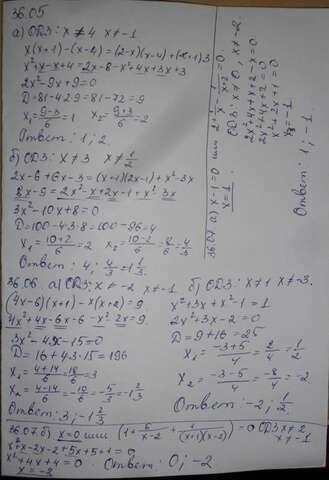 36.05
а) ОДЗ: x ≠ 4 x ≠ -1
x(x+1)-(x-4)=(2-x)(x-4)+(x+1)3
x²+x-x+4=2x-8-x²+4x+3x+3
2x²-9x+9=0
D=81-4·2·9=81-72=9
x₁=(9-3)/6=1 x₂=(9+3)/6=2
Ответ: 1; 2.
б) ОДЗ: x ≠ 3 x ≠ 1/2
2x-6+6x-3=(x+1)(2x-1)+x²-3x
8x-9=2x²-x+2x-1+x²-3x
3x²-10x+8=0
D=100-4·3·8=100-96=4
x₁=(10+2)/6=2 x₂=(10-2)/6=8/6=4/3
Ответ: 4; 4/3=1 1/3
36.06. а) ОДЗ: x ≠ -2 x ≠ -1
(4x-6)(x+1)-x(x+2)=9
4x²+4x-6x-6-x²-2x=9
3x²-4x-15=0
D=16+4·3·15=196
x₁=(4+14)/6=18/6=3
x₂=(4-14)/6=-10/6=-5/3=-1 2/3
Ответ: 3; -1 2/3
б) ОДЗ: x ≠ 1 x ≠ -3.
x²+3x+x²-1=1
2x²+3x-2=0
D=9+16=25
x₁=(-3+5)/4=2/4=1/2
x₂=(-3-5)/4=-8/4=-2
Ответ: -2; 1/2
36.07. а) x-1=0 или
x=1
ОДЗ: x ≠ 0, x ≠ -2
2x²+4x+2=0
x²+2x+1=0
x=-1
Ответ: 1; -1
36.07. б) x=0 или (1+6/(x-2)+1/((x+1)(x-2)))=0 ОДЗ x ≠ 2
x ≠ -1
x²+x-2x-2+5x+5+1=0
x²+4x+4=0
x=-2
Ответ: 0; -2